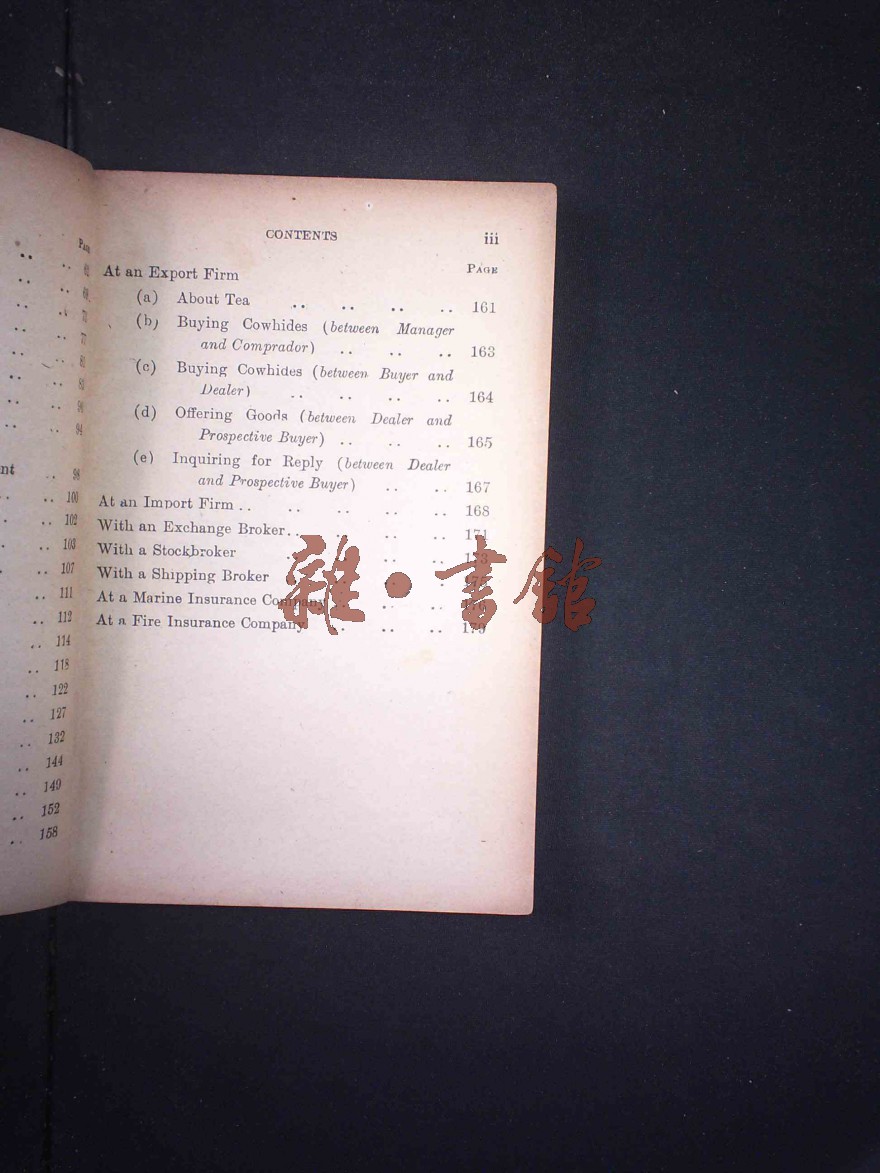 PAGE
69
72
77
81
94
nt
98
100
102
103
107
111
112
114
118
122
127
132
144
149
152
158
CONTENTS iii
PAGE
At an Export Firm
(a) About Tea .. .. .. .. 161
(b) Buying Cowhides (between Manager
and Comprador) .. .. .. 163
(c) Buying Cowhides (between Buyer and
Dealer) .. .. .. .. 164
(d) Offering Goods (between Dealer and
Prospective Buyer) .. .. .. 165
(e) Inquiring for Reply (between Dealer
and Prospective Buyer) .. .. 167
At an Import Firm .. .. .. .. .. 168
With an Exchange Broker .. .. .. .. 171
With a Stockbroker .. .. .. .. 173
With a Shipping Broker .. .. .. 175
At a Marine Insurance Company .. .. .. 176
At a Fire Insurance Company .. .. .. 179
雜·書館